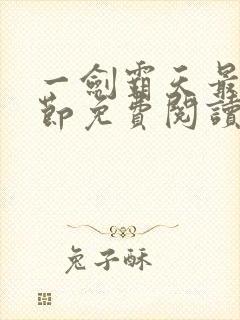 一劍霸天最
節免費閱讀
兔子酥